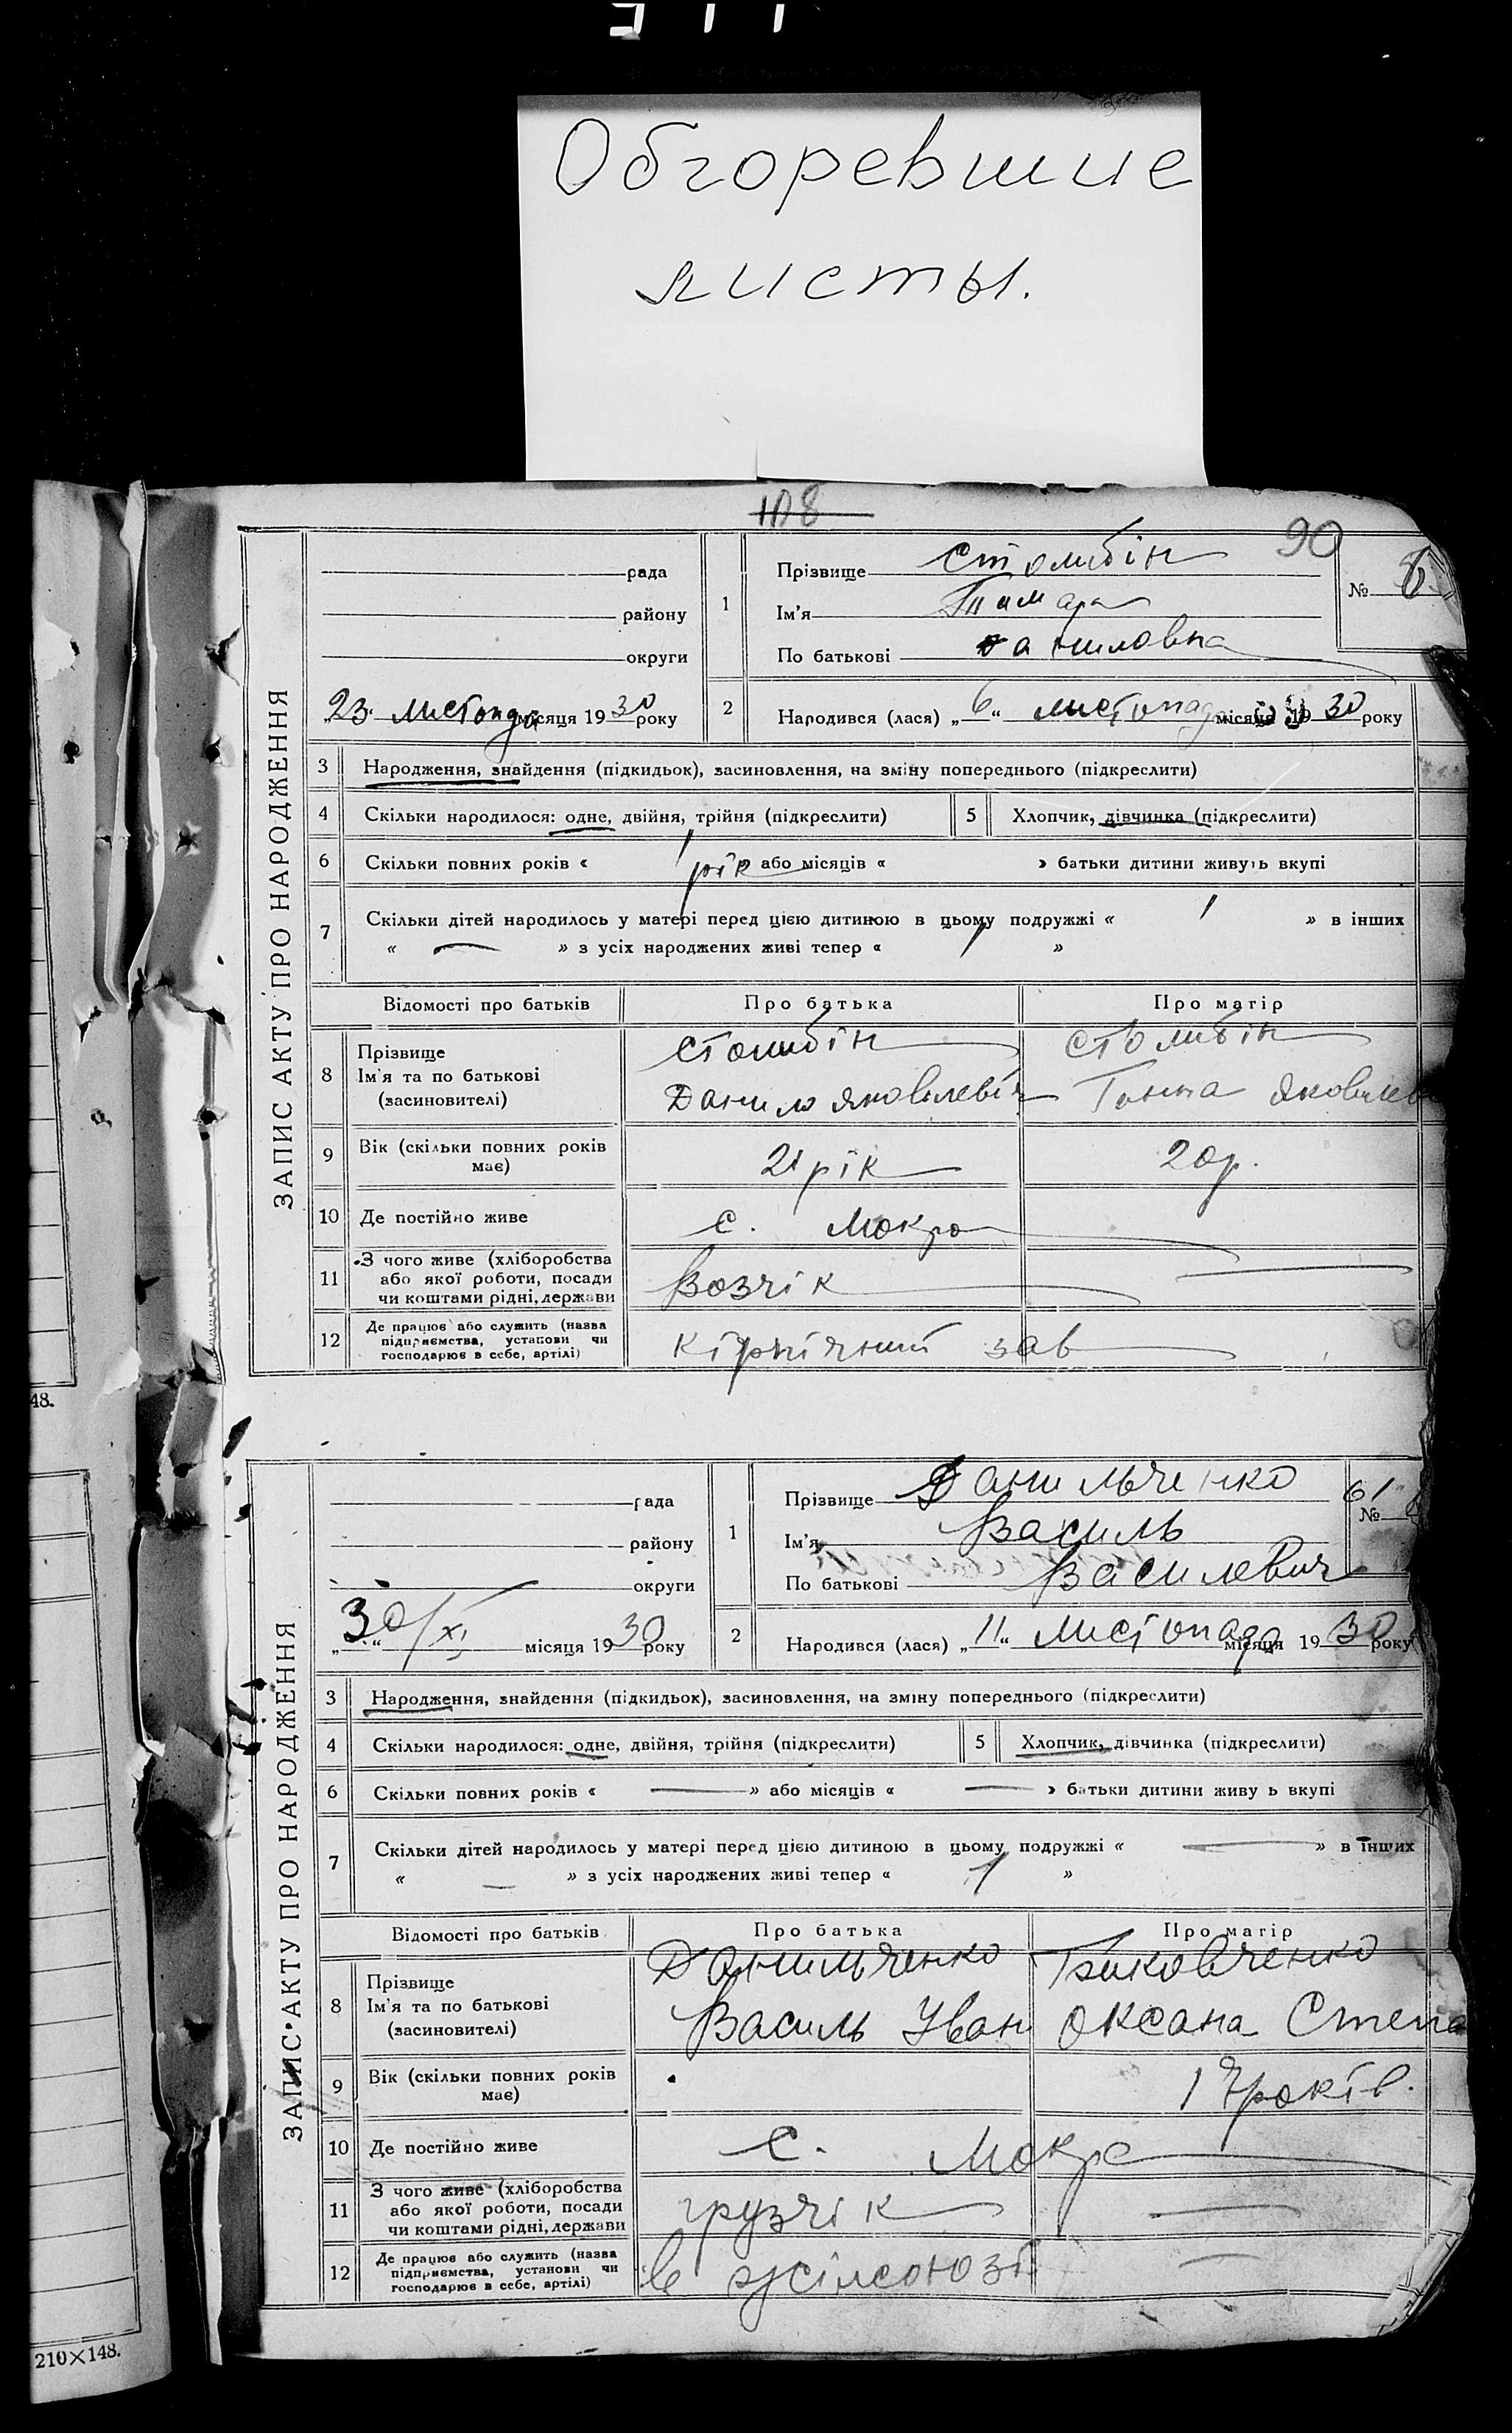 Обгоревшие
листы.
108
90
ЗАПИС АКТУ ПРО НАРОДЖЕННЯ
рада
району
округи
„23“ листопада місяця 1930 року
1
Прізвище Столибін
Ім'я Тамара
По батькові Даниловна
№ 6
2
Народився (лася) „6“ листопада місяця 1930 року
3 Народження, знайдення (підкидьок), засиновлення, на зміну попереднього (підкреслити)
4 Скільки народилося: одне, двійня, трійня (підкреслити)
5 Хлопчик, дівчинка (підкреслити)
6 Скільки повних років « 1 рік або місяців « » батьки дитини живуть вкупі
7 Скільки дітей народилось у матері перед цією дитиною в цьому подружжі « 1 » в інших
« — » з усіх народжених живі тепер « 1 »
Відомості про батьків Про батька Про матір
8 Прізвище
Ім'я та по батькові
(засиновителі)
Столибін
Данило Яковлевіч
Столибін
Яковлев
9 Вік (скільки повних років
має)
21 рік
20 р.
10 Де постійно живе с. Мокра
11 З чого живе (хліборобства
або якої роботи, посади
чи коштами рідні, держави
Возчік —
12 Де працює або служить (назва
підприємства, установи чи
господарює в себе, артілі)
кірпічний зав
48.
ЗАПИС АКТУ ПРО НАРОДЖЕННЯ
рада
району
округи
„30“/XI місяця 1930 року
1
Прізвище Данильченко
Ім'я Василь
По батькові Василевич
61
№
2
Народився (лася) „11“ листопада місяця 1930 року
3 Народження, знайдення (підкидьок), засиновлення, на зміну попереднього (підкреслити)
4 Скільки народилося: одне, двійня, трійня (підкреслити)
5 Хлопчик, дівчинка (підкреслити)
6 Скільки повних років « — » або місяців « — » батьки дитини живу ь вкупі
7 Скільки дітей народилось у матері перед цією дитиною в цьому подружжі « — » в інших
« — » з усіх народжених живі тепер « 1 »
Відомості про батьків Про батька Про матір
8 Прізвище
Ім'я та по батькові
(засиновителі)
Данильченко
Василь Іван
Биковченко
Оксана Степа
9 Вік (скільки повних років
має)
17 років.
10 Де постійно живе с. Мокра
11 З чого живе (хліборобства
або якої роботи, посади
чи коштами рідні, держави
грузчік —
12 Де працює або служить (назва
підприємства, установи чи
господарює в себе, артілі)
в жілсоюзі —
210×148.